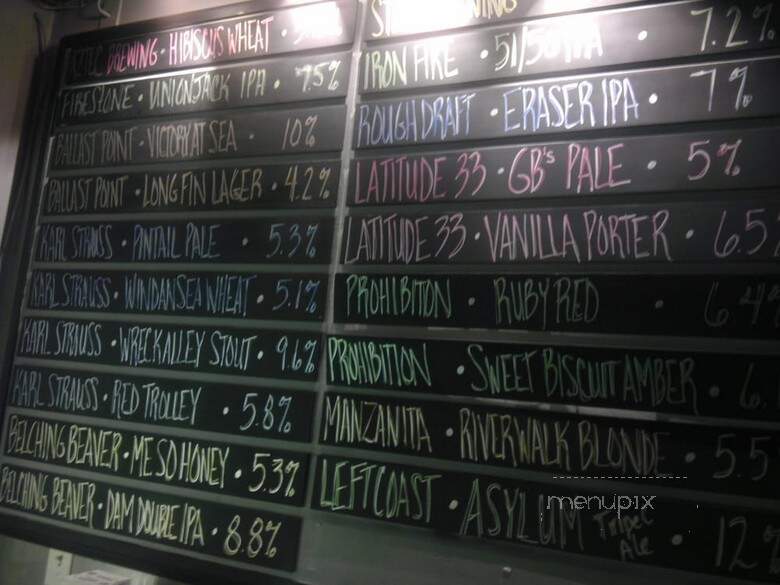 BREWING · HIBISCUS WHEAT ·
FIRESTONE · UNION JACK IPA · 7.5%
BALLAST POINT · VICTORY AT SEA · 10%
BALLAST POINT · LONG FIN LAGER · 4.2%
KARL STRAUSS · PINTAIL PALE · 5.3%
KARL STRAUSS · WINDANSEA WHEAT · 5.1%
KARL STRAUSS · WRECK ALLEY STOUT · 9.6%
KARL STRAUSS · RED TROLLEY · 5.8%
BELCHING BEAVER · ME SO HONEY · 5.3%
BELCHING BEAVER · DAM DOUBLE IPA · 8.8%
IRON FIRE · 51/50 IPA · 7.2%
ROUGH DRAFT · ERASER IPA · 7%
LATITUDE 33 · GB's PALE · 5%
LATITUDE 33 · VANILLA PORTER · 6.5
PROHIBITON · RUBY RED · 6.4%
PROHIBITION · SWEET BISCUIT AMBER · 6.
MANZANITA · RIVERWALK BLONDE · 5.5
LEFTCOAST · ASYLUM Tripel Ale · 12%
menupix